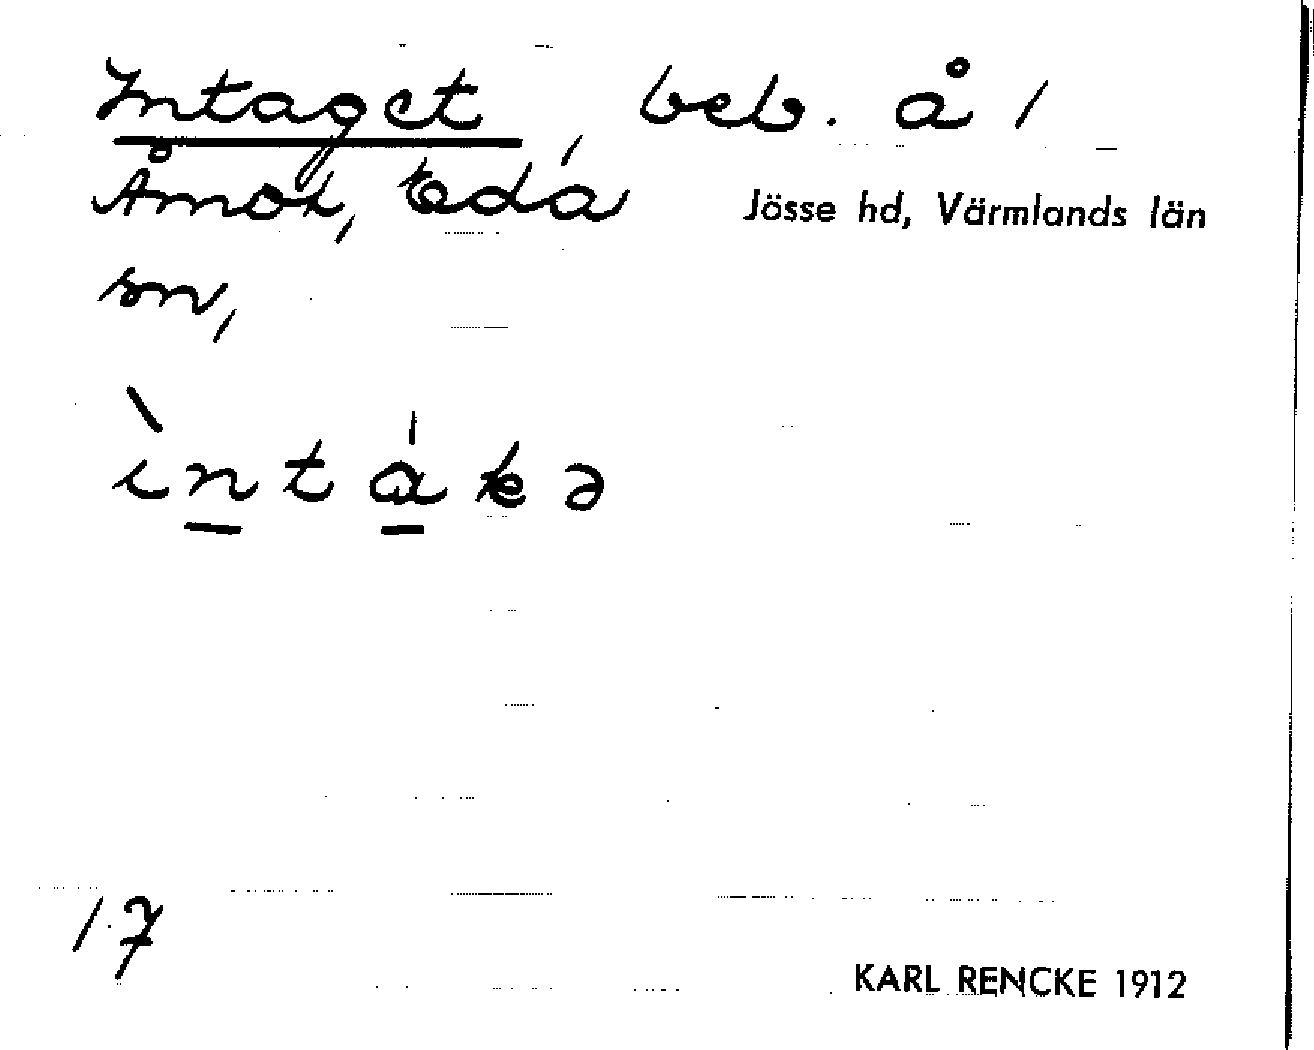 Intaget, beb. å 1
Åmot, Eda
Jösse hd, Värmlands län
sn,
ìntákə
17
KARL RENCKE 1912